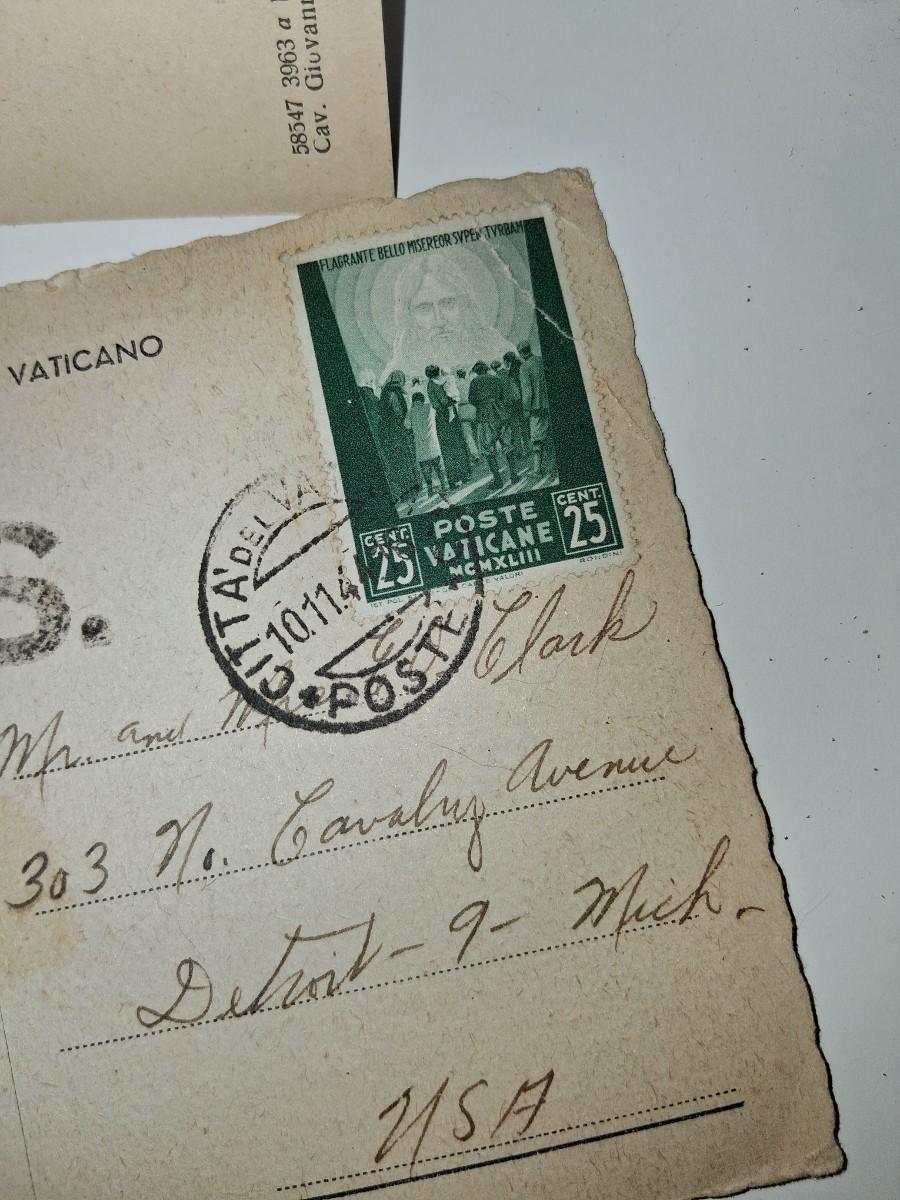 58547 3963 a
Cav. Giovann
VATICANO
FLAGRANTE BELLO MISEREOR SVPER TVRBAM
CENT. 25
POSTE VATICANE
MCMXLIII
CENT. 25
RONDINI
CITTA' DEL VA
10.11.4
POSTE
S.
Mr. and Mrs. Clark
303 N. Cavalry Avenue
Detroit - 9 - Mich.
USA